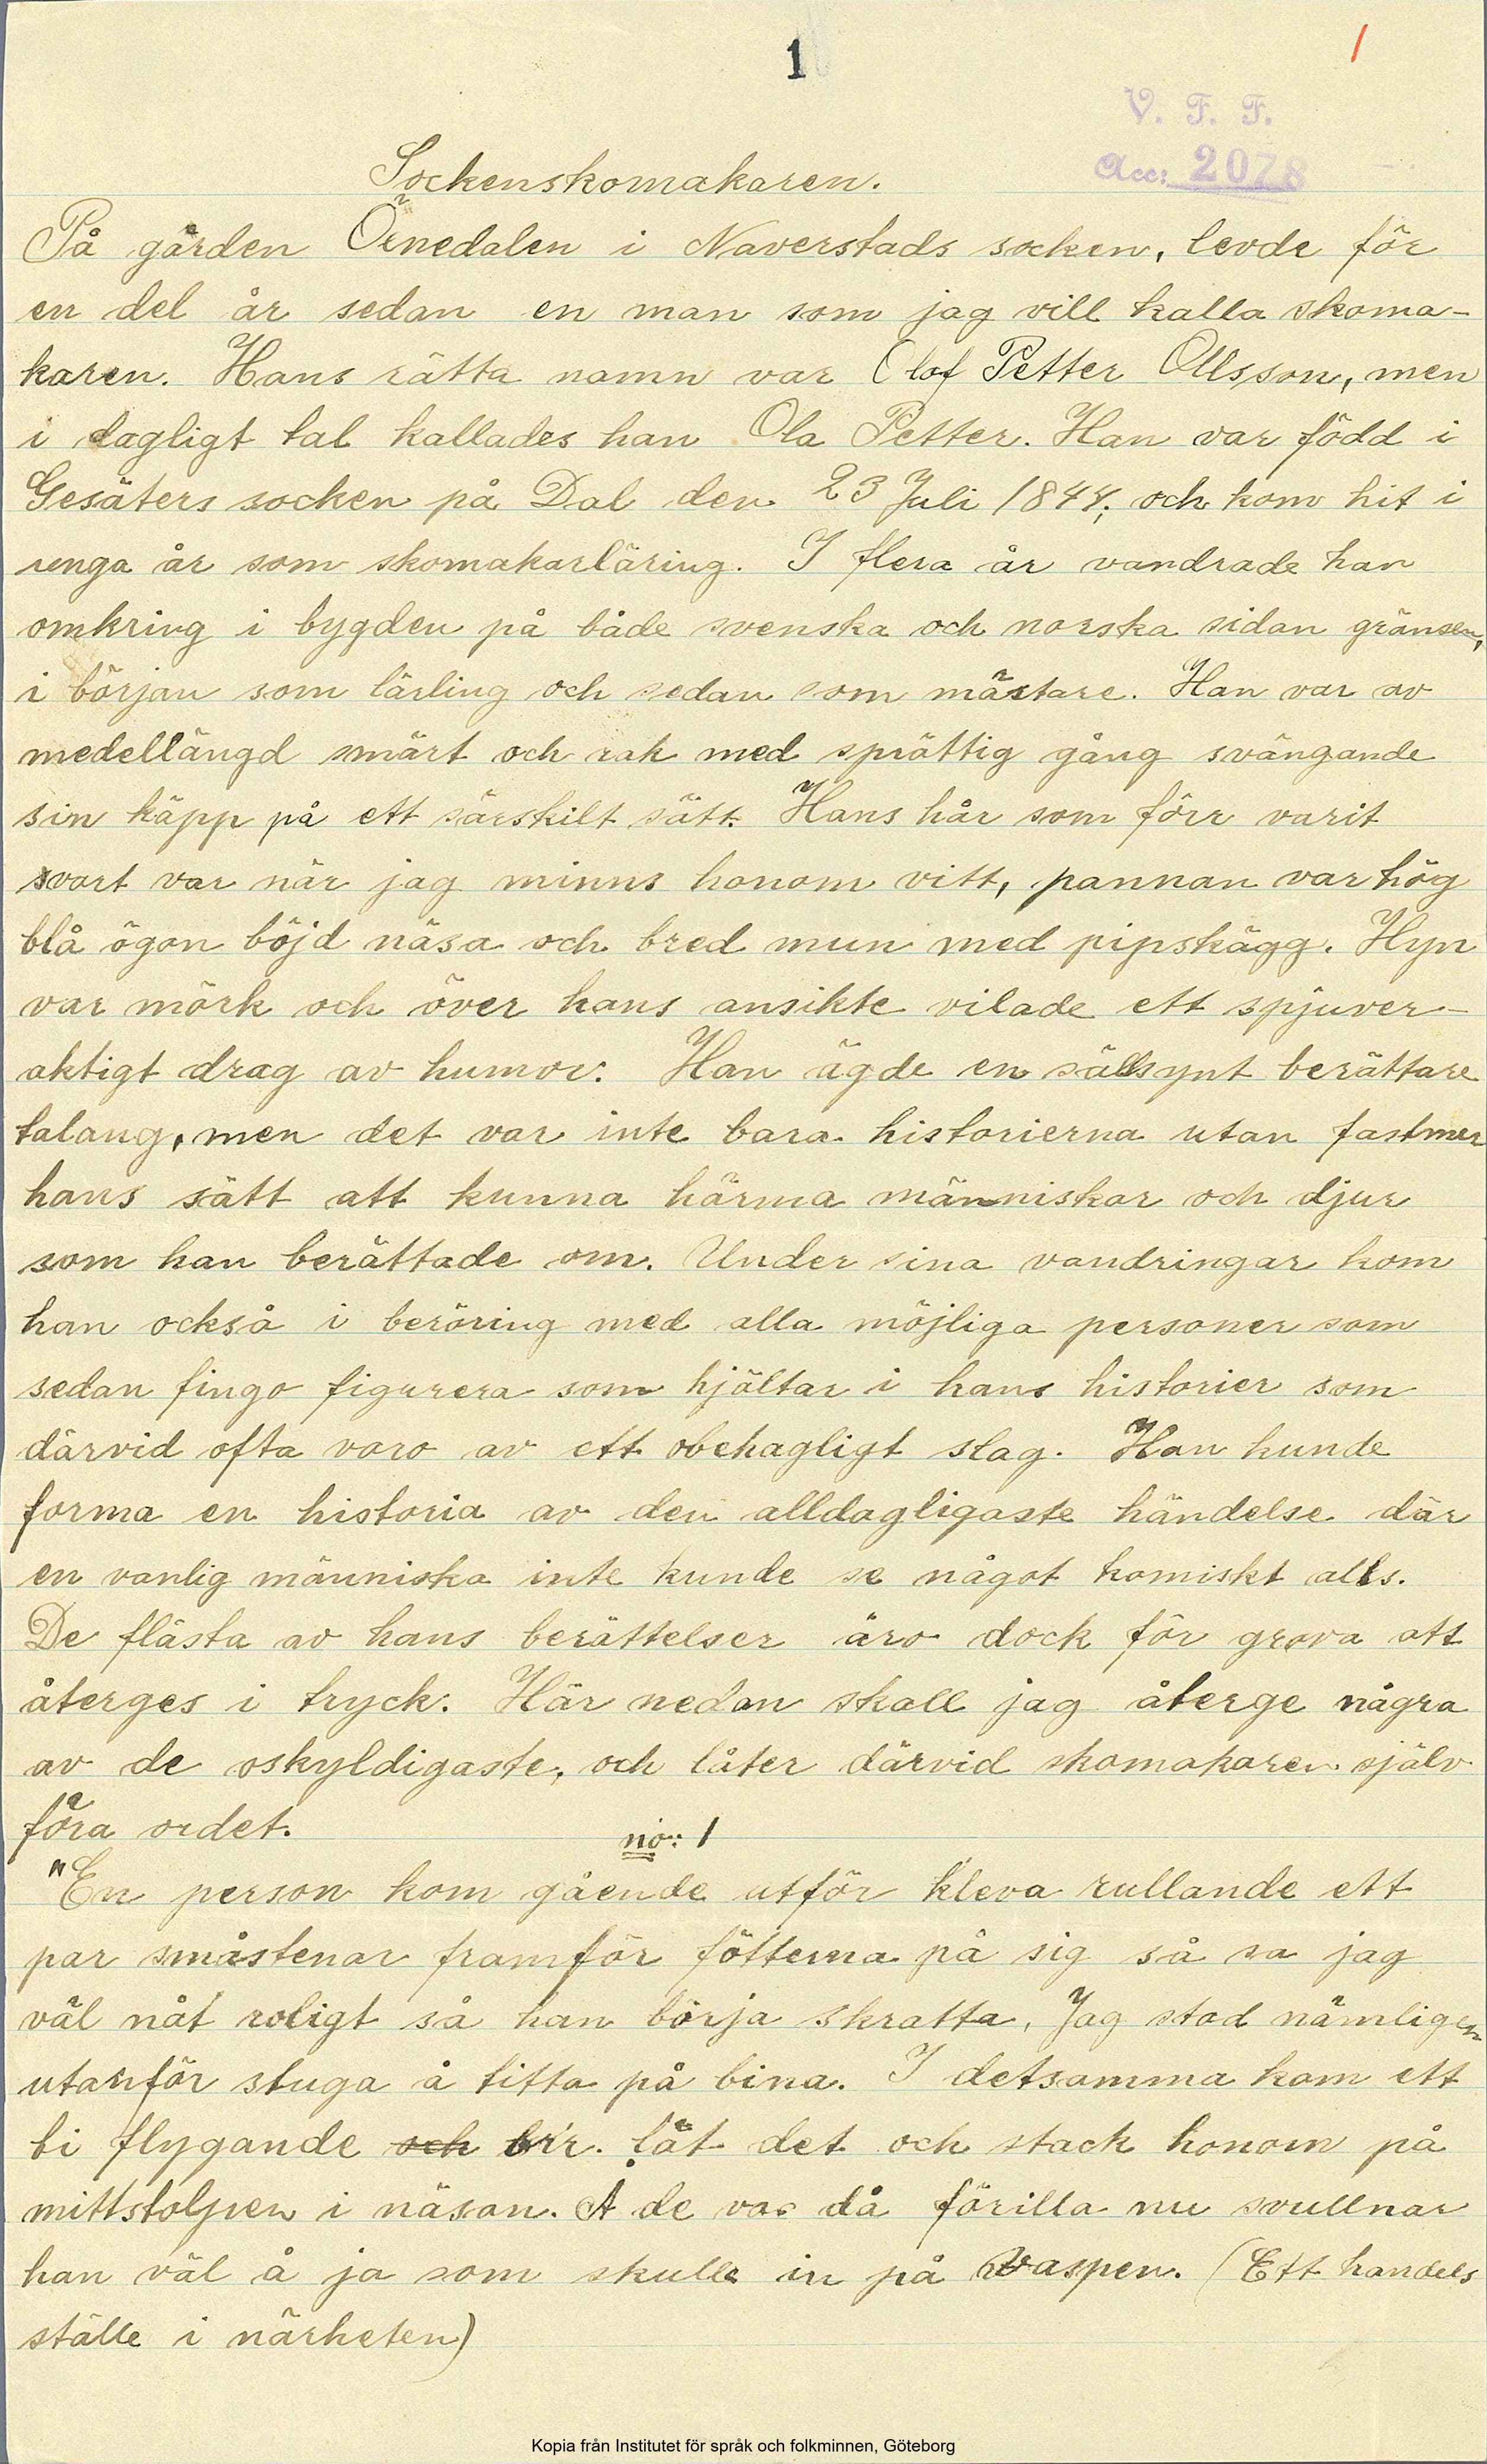 1
/
V. F. F.
Acc: 2078
Sockenskomakaren.
På gården Örnedalen i Naverstads socken, levde för
en del år sedan en man som jag vill kalla skoma-
karen. Hans rätta namn var Olof Petter Ollsson, men
i dagligt tal kallades han Ola Petter. Han var född i
Gesäters socken på Dal den 23 Juli 1844, och kom hit i
unga år som skomakarläring. I flera år vandrade han
omkring i bygden på både svenska och norska sidan gränsen,
i början som lärling och sedan som mästare. Han var av
medellängd smärt och rak med sprättig gång svängande
sin käpp på ett särskilt sätt. Hans hår som förr varit
svart var när jag minns honom vitt, pannan var hög
blå ögon böjd näsa och bred mun med pipskägg. Hyn
var mörk och över hans ansikte vilade ett spjuver-
aktigt drag av humor. Han ägde en sällsynt berättare
talang, men det var inte bara historierna utan fastmer
hans sätt att kunna härma människor och djur
som han berättade om. Under sina vandringar kom
han också i beröring med alla möjliga personer som
sedan fingo figurera som hjältar i hans historier som
därvid ofta voro av ett obehagligt slag. Han kunde
forma en historia av den alldagligaste händelse där
en vanlig människa inte kunde se något komiskt alls.
De flästa av hans berättelser äro dock för grova att
återges i tryck. Här nedan skall jag återge några
av de oskyldigaste, och låter därvid skomakaren själv
föra ordet.
no: 1
"En person kom gående utför kleva rullande ett
par småstenar framför fötterna på sig så sa jag
väl nåt roligt så han börja skratta. Jag stod nämligen
utanför stuga å titta på bina. I detsamma kom ett
bi flygande och br'r. låt det och stack honom på
mittstolpen i näsan. Å de var då förilla nu svullnar
han väl å ja som skulle in på Vaspen. (Ett handels
ställe i närheten)
Kopia från Institutet för språk och folkminnen, Göteborg